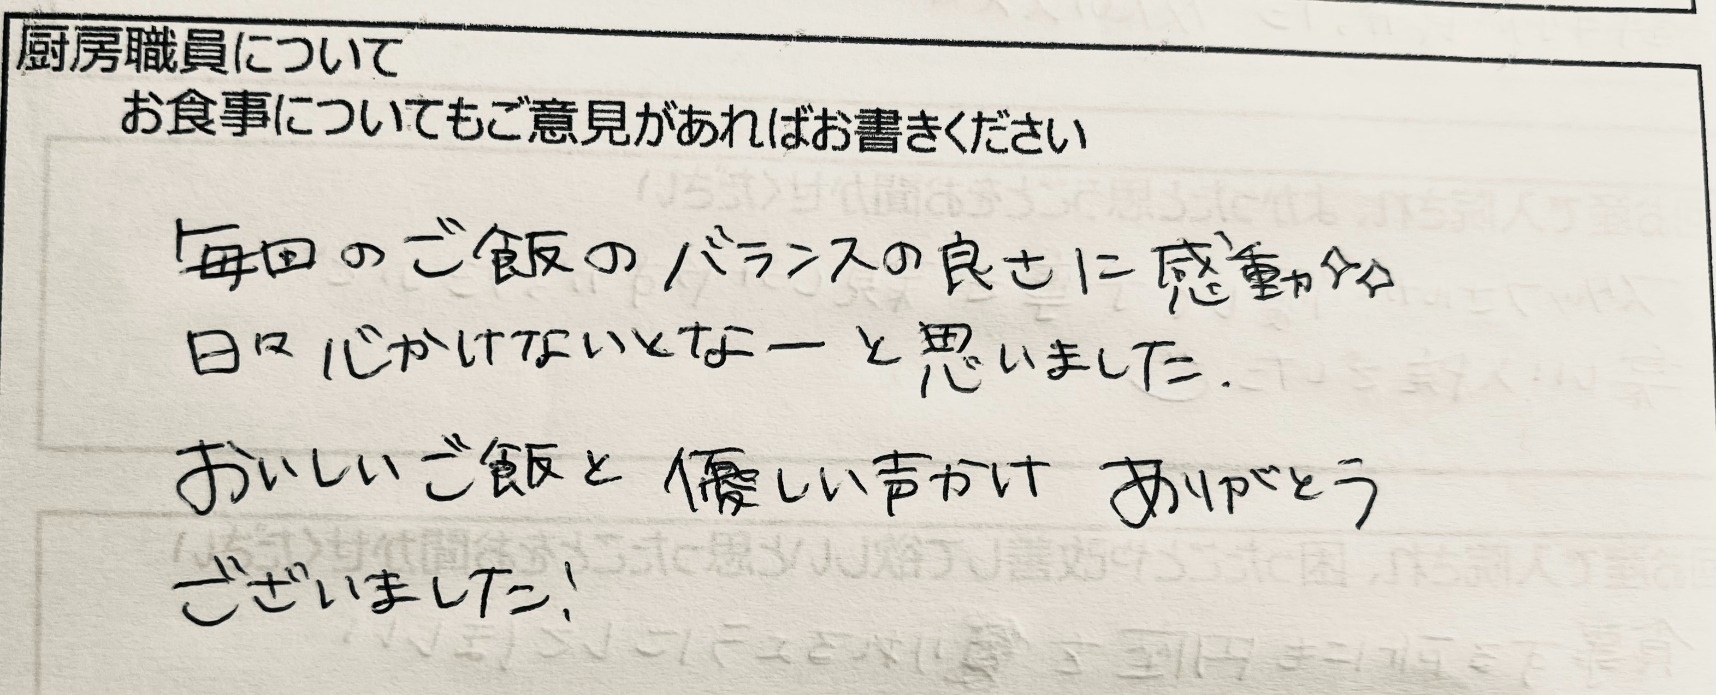 厨房職員について
お食事についてもご意見があればお書きください
毎回のご飯のバランスの良さに感動✧✧
日々心がけないとなーと思いました.
おいしいご飯と 優しい声かけ ありがとう
ございました!